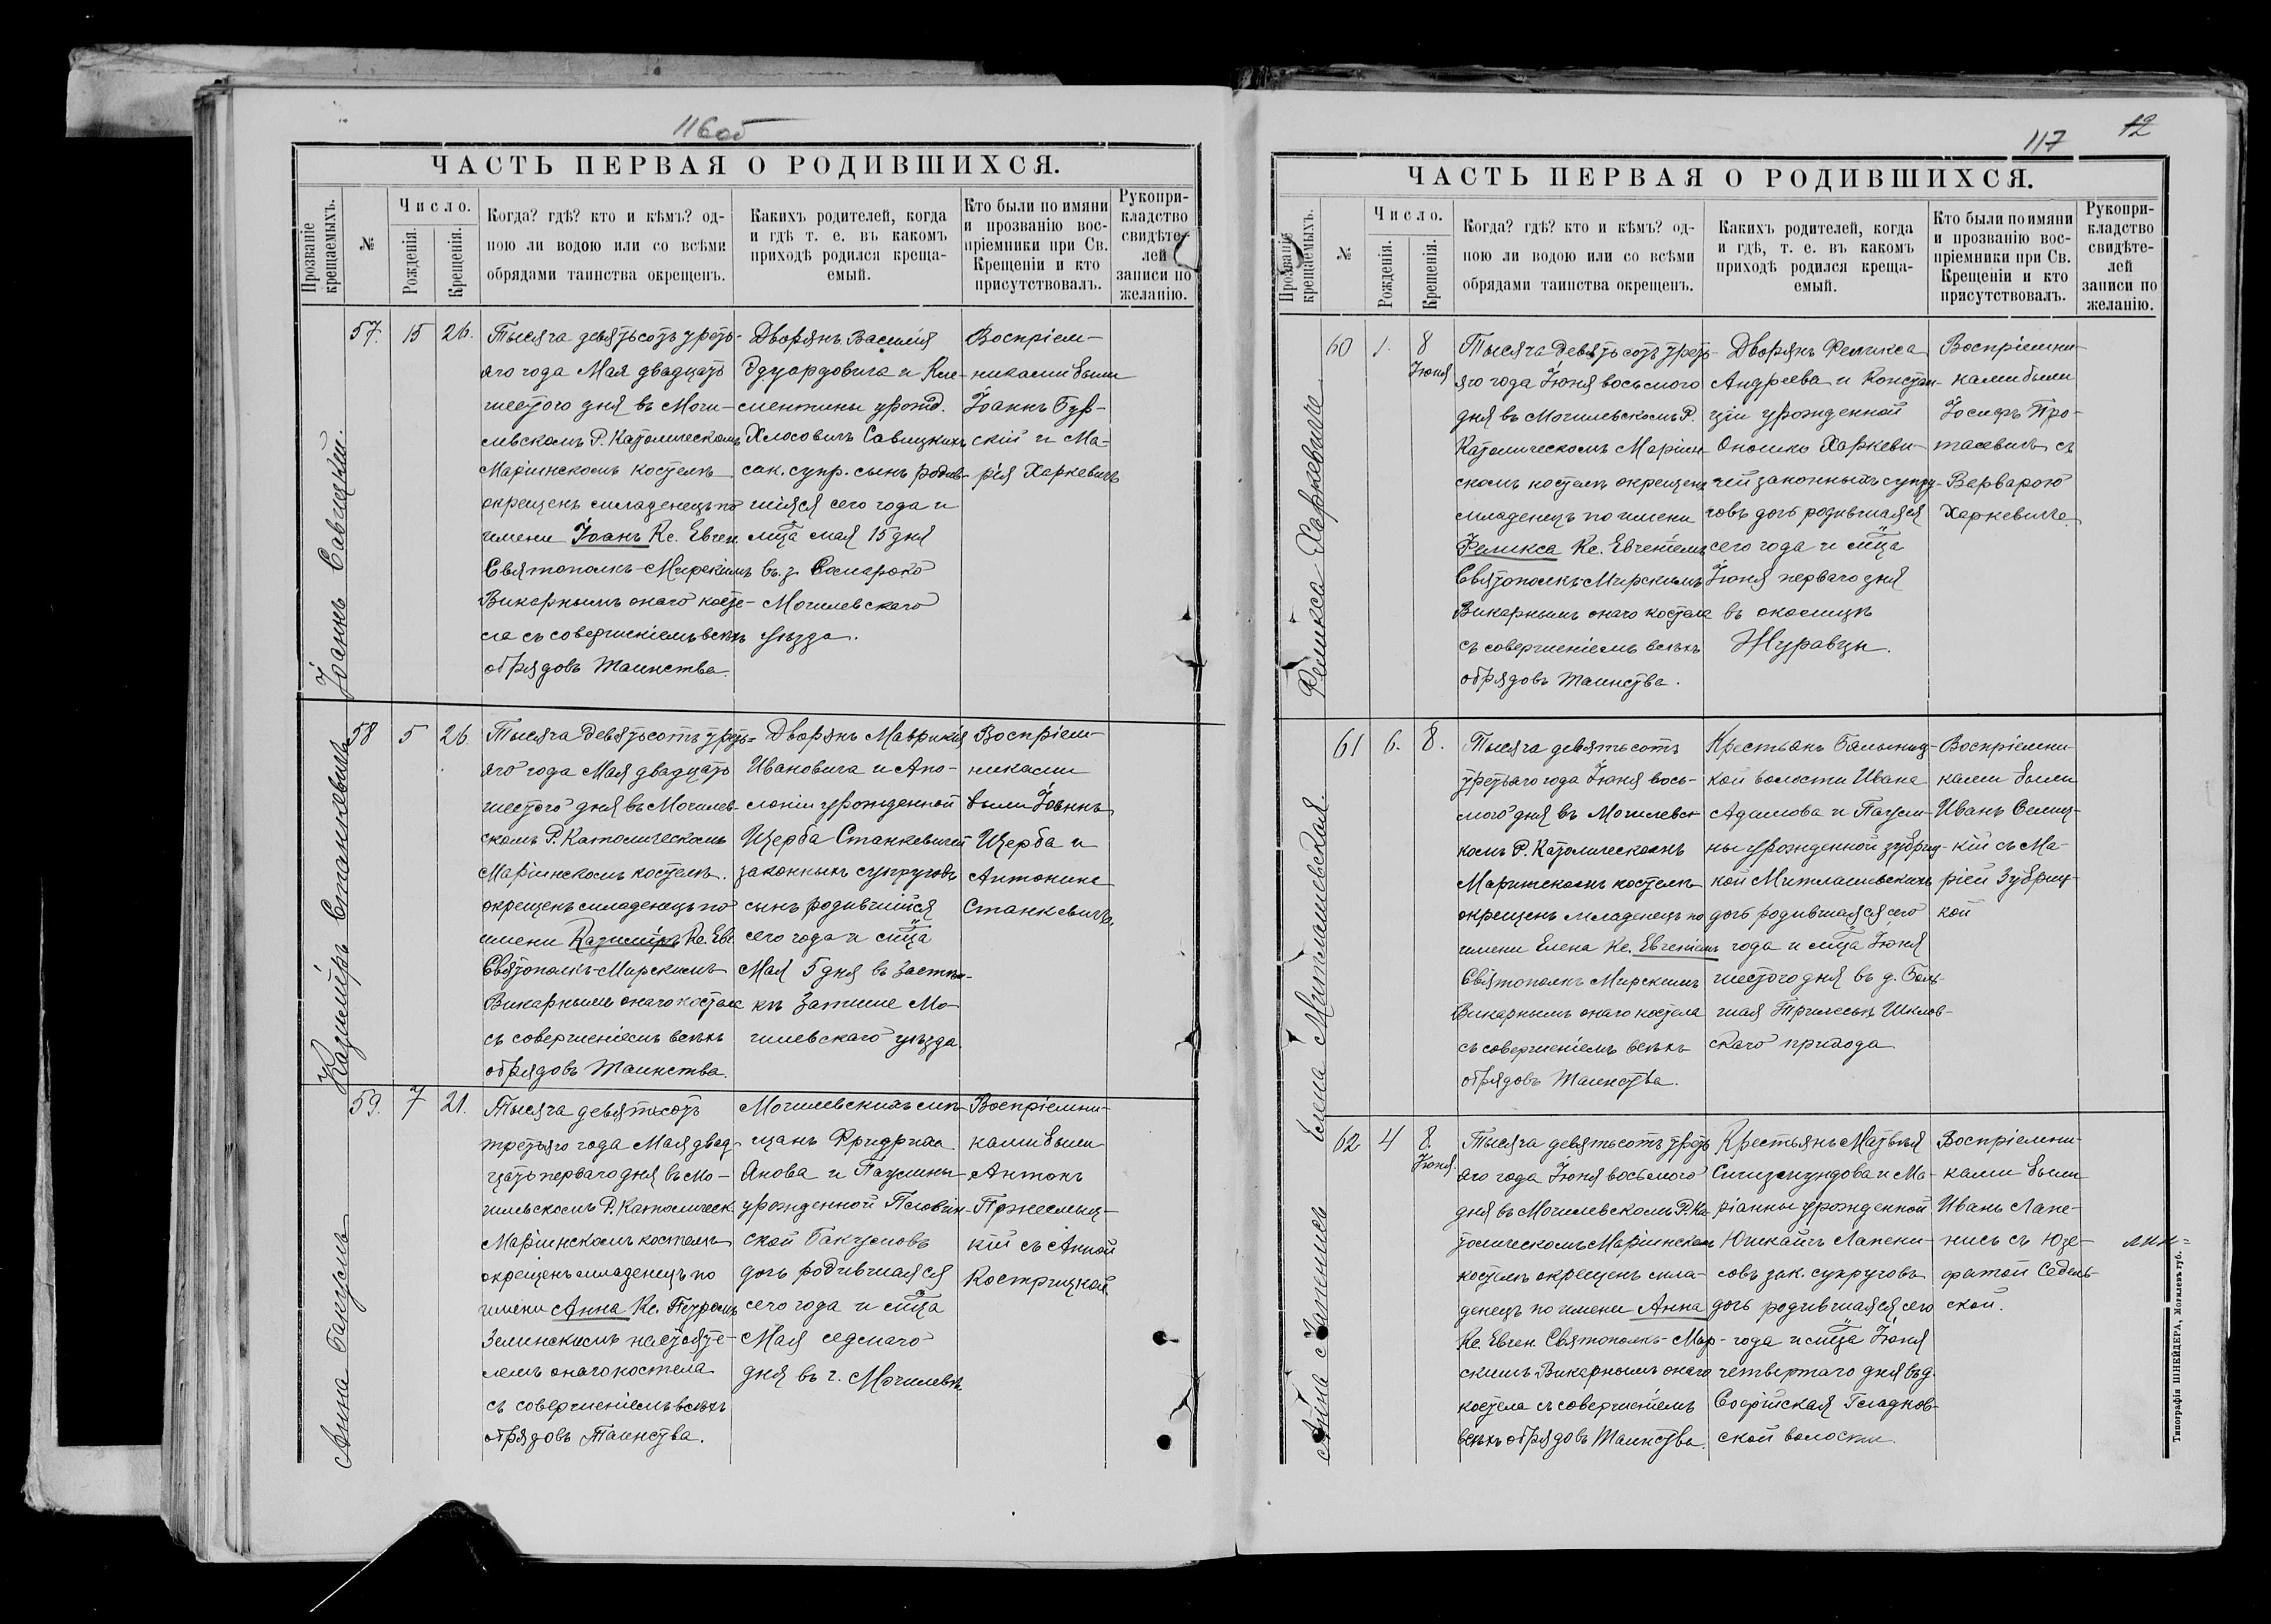 116об
ЧАСТЬ ПЕРВАЯ О РОДИВШИХСЯ.
Прозваніе крещаемыхъ.
№
Число.
Рожденія.
Крещенія.
Когда? гдѣ? кто и кѣмъ? од-
ною ли водою или со всѣми
обрядами таинства окрещенъ.
Какихъ родителей, когда
и гдѣ т. е. въ какомъ
приходѣ родился креща-
емый.
Кто были по имяни
и прозванію вос-
пріемники при Св.
Крещеніи и кто
присутствовалъ.
Рукопри-
кладство
свидѣте-
лей
записи по
желанію.
Іоаннъ Савицкій.
57.
15
26.
Тысяча девятьсотъ треть-
яго года Мая двадцать
шестого дня въ Моги-
левскомъ Р. Католическомъ
Маріинскомъ костелѣ
окрещенъ младенецъ по
имени Іоанъ Кс. Евген
Святополкъ-Мирскимъ
Викарнымъ онаго косте-
ла съ совершеніемъ всѣхъ
обрядовъ Таинства.
Дворянъ Василія
Эдуардовича и Кле-
ментины урожд.
Хлосовичъ Савицкихъ
зак. супр. сынъ родив-
шійся сего года и
мѣсца мая 15 дня
въ з. Сомароко
Могилевскаго
уѣзда.
Воспріем-
никами были
Іоаннъ Бур-
скій и Ма-
рія Харкевичъ
Казиміръ Станкевичъ
58
5
26.
Тысяча девятьсотъ треть-
яго года Мая двадцать
шестого дня въ Могилев-
скомъ Р. Католическомъ
Маріинскомъ костелѣ.
окрещенъ младенецъ по
имени Казиміръ Кс. Евг.
Святополкъ-Мирскимъ
Викарнымъ онаго костела
съ совершеніемъ всѣхъ
обрядовъ Таинства.
Дворянъ Маврикія
Ивановича и Апо-
лоніи урожденной
Щерба Станкевичей
законныхъ супруговъ
сынъ родившійся
сего года и мѣсца
Мая 5 дня въ застѣн-
кѣ Затише Мо-
гилевскаго уѣзда.
Воспріем-
никами
были Іоаннъ
Щерба и
Антонина
Станкевичъ.
Анна Бакусъ
59.
7
21.
Тысяча девятьсотъ
третьяго года Мая двад-
цать перваго дня въ Мо-
гилевскомъ Р. Католическ.
Маріинскомъ костелѣ
окрещенъ младенецъ по
имени Анна Кс. Петромъ
Зелинскимъ настояте-
лемъ онаго костела
съ совершеніемъ всѣхъ
обрядовъ Таинства.
Могилевскихъ мѣ-
щанъ Фридриха
Янова и Паулины
урожденной
ской Бакусовъ
дочь родившаяся
сего года и мѣсца
Мая седмаго
дня въ г. Могилевѣ.
Воспріемни-
ками были
Антонъ
Пржесмыц-
кій съ Анной
Костржицкой.
117
12
ЧАСТЬ ПЕРВАЯ О РОДИВШИХСЯ.
Прозваніе крещаемыхъ.
№
Число.
Рожденія.
Крещенія.
Когда? гдѣ? кто и кѣмъ? од-
ною ли водою или со всѣми
обрядами таинства окрещенъ.
Какихъ родителей, когда
и гдѣ, т. е. въ какомъ
приходѣ родился креща-
емый.
Кто были по имяни
и прозванію вос-
пріемники при Св.
Крещеніи и кто
присутствовалъ.
Рукопри-
кладство
свидѣте-
лей
записи по
желанію.
Феликса Харкевичъ
60
1.
8
Іюня
Тысяча девятьсотъ треть-
яго года Іюня восьмого
дня въ Могилевскомъ Р.
Католическомъ Маріин-
скомъ костелѣ окрещенъ
младенецъ по имени
Феликса Кс. Евгеніемъ
Святополкъ Мирскимъ
Викарнымъ онаго костела
съ совершеніемъ всѣхъ
обрядовъ Таинства.
Дворянъ Феликса
Андреева и Констан-
ціи урожденной
Оношко Харкеви-
чей законныхъ супру-
говъ дочь родившаяся
сего года и мѣсца
Іюня перваго дня
въ околицѣ
Журавцы.
Воспріемни-
ками были
Іосифъ Про-
тасевичъ съ
Варварою
Харкевичъ
Елена Митлашевская.
61
6.
8.
Тысяча девятьсотъ
третьяго года Іюня вось-
мого дня въ Могилевс-
комъ Р. Католическомъ
Маріинскомъ костелѣ
окрещенъ младенецъ по
имени Елена Кс. Евгеніемъ
Святополкъ Мирскимъ
Викарнымъ онаго костела
съ совершеніемъ всѣхъ
обрядовъ Таинства.
Крестьянъ Бялыниц-
кой волости Ивана
Адамова и Паули-
ны урожденной Зубриц-
кой Митлашевскихъ
дочь родившаяся сего
года и мѣсца Іюня
шестого дня въ д. Боль-
шая Трилесьнъ Шклов-
скаго прихода
Воспріемни-
ками были
Иванъ Селиц-
кій съ Ма-
ріей Зубриц-
кой
Анна Лапенись
62
4
8.
Іюня.
Тысяча девятьсотъ треть
яго года Іюня восьмого
дня въ Могилевскомъ Р. Ка
толическомъ Маріинском
костелѣ окрещенъ мла-
денецъ по имени Анна
Кс. Евген. Святополкъ-Мир-
скимъ Викарнымъ онаго
костела съ совершеніемъ
всѣхъ обрядовъ Таинства.
Крестьянъ Матвѣя
Сигизмундова и Ма-
ріанны урожденной
Юшкайтъ Лапени-
совъ зак. супруговъ
дочь родившаяся сего
года и мѣсца Іюня
четвертаго дня въ д.
Софійская Гладков-
ской волости.
Воспріемни-
ками были
Иванъ Лапе-
нисъ съ Юзе-
фатой Седель-
ской.
Типографія ШНЕЙДЕРА, Могилевъ губ.